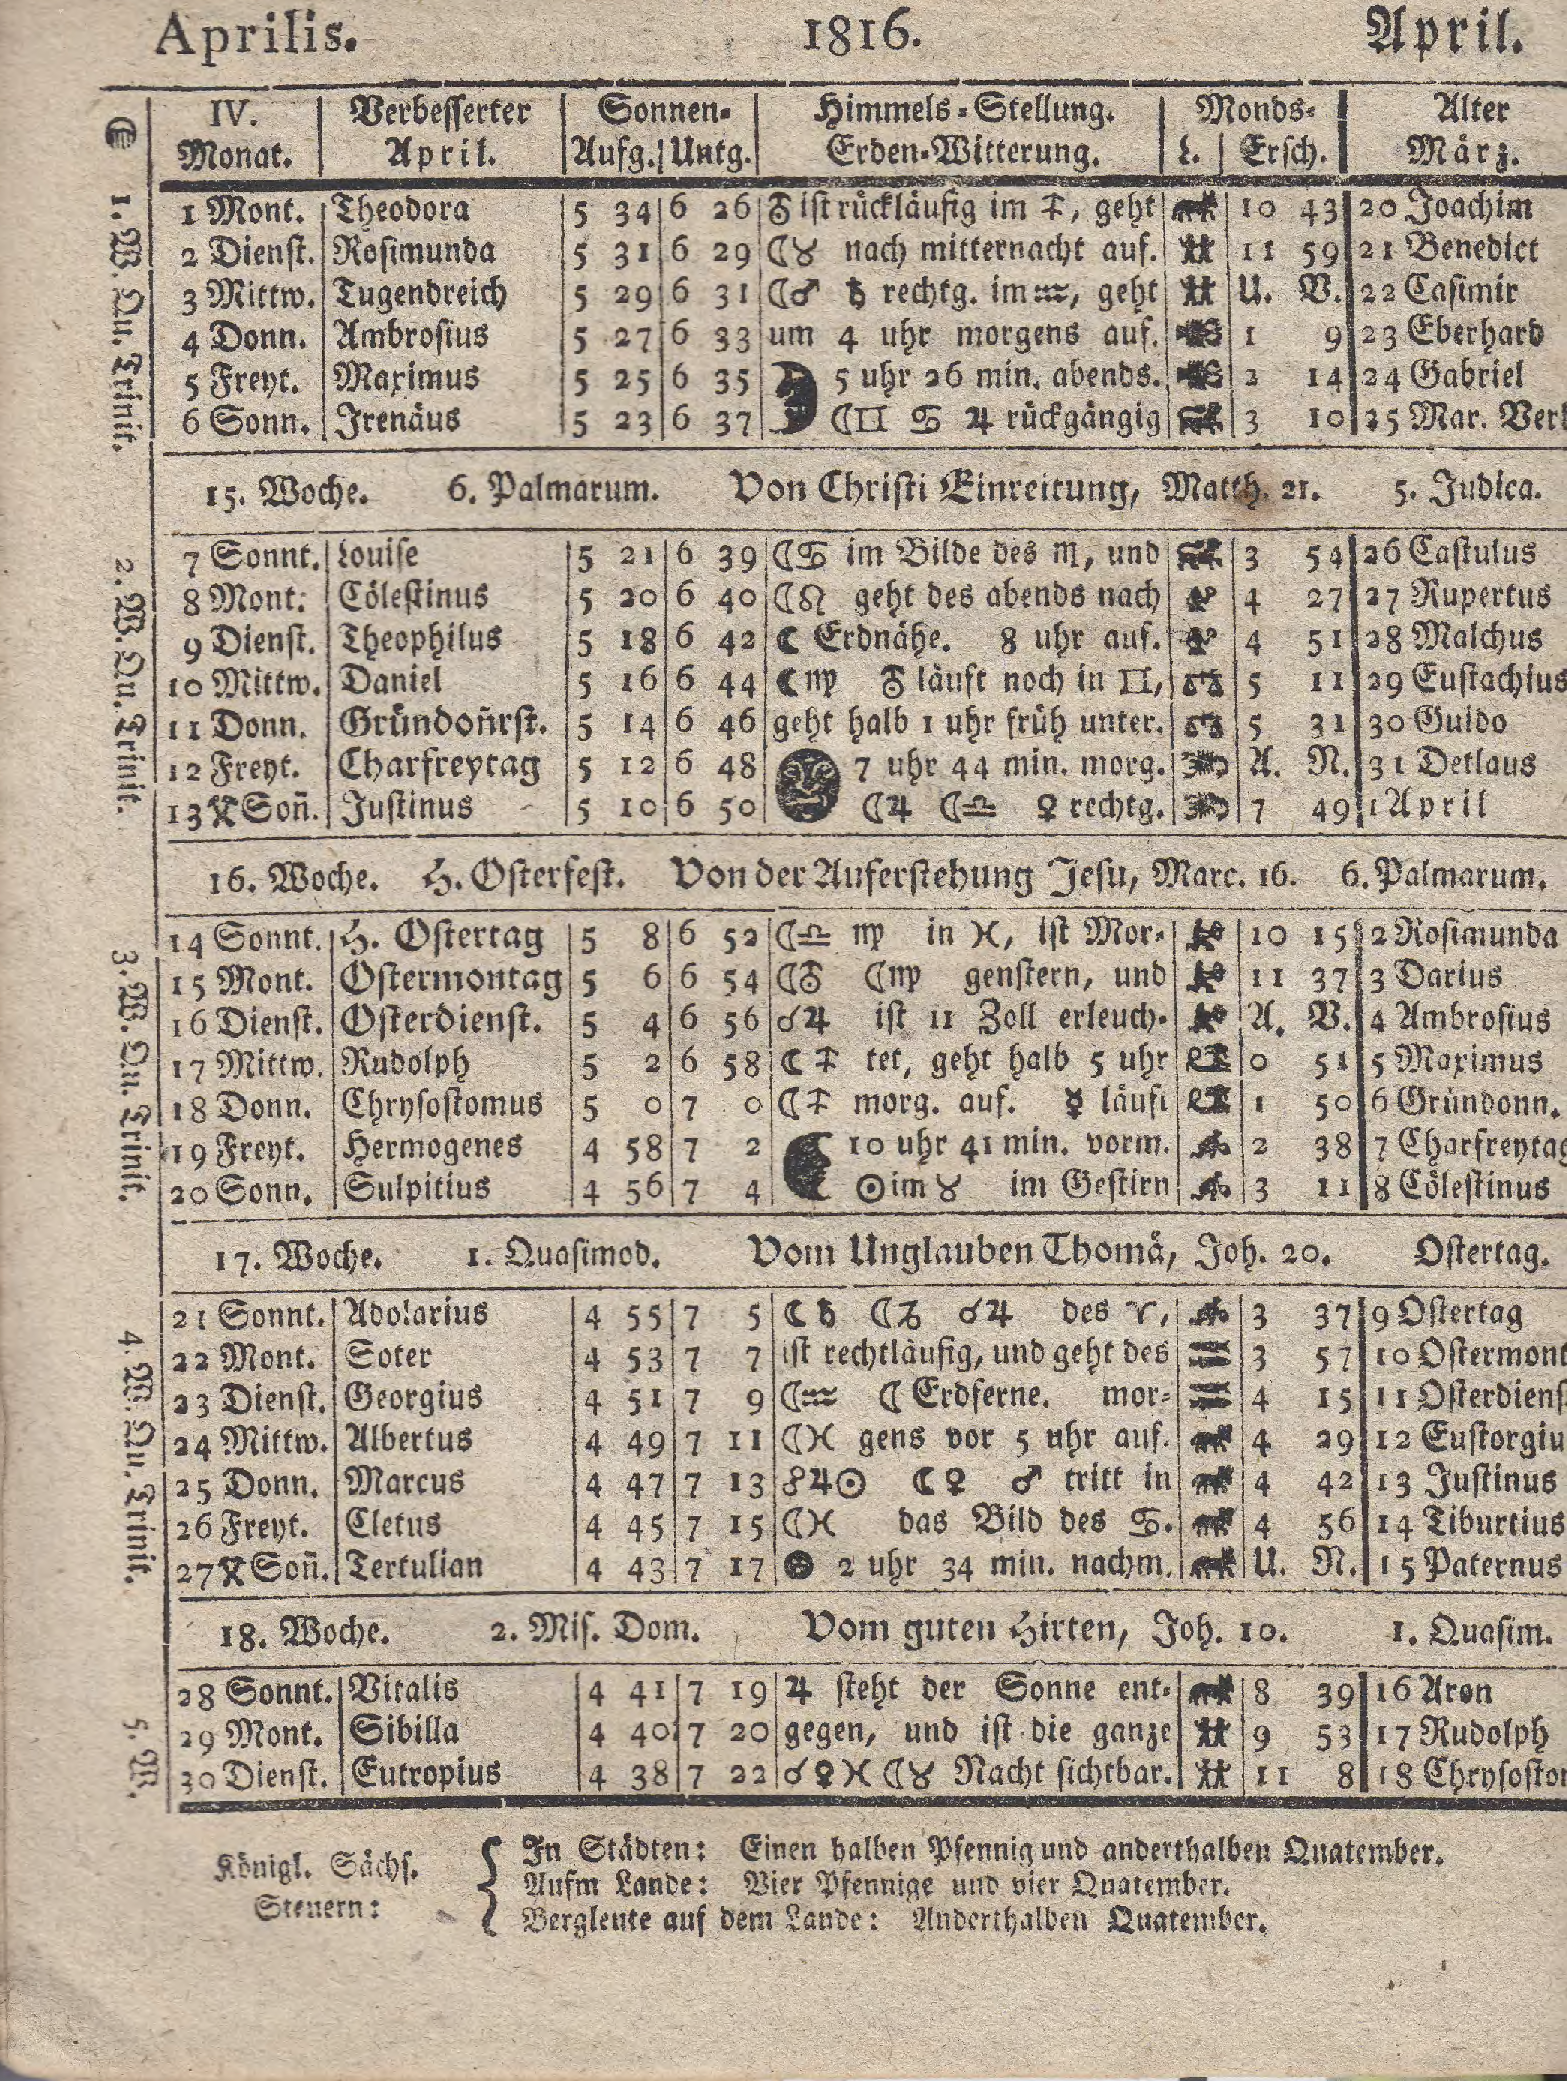 Aprilis. 1816. April.
IV. Verbesserter Sonnen- Himmels-Stellung. Monds- Alter
Monat. April. Aufg. Untg. Erden-Witterung. L. Ersch. März.
1 Mont. Theodora 5 34 6 26 ⛢ ist rückläufig im ♐, geht 10 43 20 Joachim
2 Dienst. Rosimunda 5 31 6 29 ☾♉ nach mitternacht auf. 11 59 21 Benedict
3 Mittw. Tugendreich 5 29 6 31 ☾♂ ♄ rechtg. im ♒, geht U. V. 22 Casimir
4 Donn. Ambrosius 5 27 6 33 um 4 uhr morgens auf. 1 9 23 Eberhard
5 Freyt. Maximus 5 25 6 35 5 uhr 26 min. abends. 2 14 24 Gabriel
6 Sonn. Irenäus 5 23 6 37 ☾♊ ♋ ♃ rückgängig 3 10 25 Mar. Verk
15. Woche. 6. Palmarum. Von Christi Einreitung, Matth. 21. 5. Judica.
7 Sonnt. Louise 5 21 6 39 ☾♋ im Bilde des ♏, und 3 54 26 Castulus
8 Mont. Cölestinus 5 20 6 40 ☾♌ geht des abends nach 4 27 27 Rupertus
9 Dienst. Theophilus 5 18 6 42 ☾ Erdnähe. 8 uhr auf. 4 51 28 Malchus
10 Mittw. Daniel 5 16 6 44 ☾♍ ⛢ läuft noch in ♊, 5 11 29 Eustachius
11 Donn. Gründoñrst. 5 14 6 46 geht halb 1 uhr früh unter. 5 31 30 Guido
12 Freyt. Charfreytag 5 12 6 48 7 uhr 44 min. morg. A. N. 31 Detlaus
13 Soñ. Justinus 5 10 6 50 ☾♃ ☾♎ ♀ rechtg. 7 49 1 April
16. Woche. H. Osterfest. Von der Auferstehung Jesu, Marc. 16. 6. Palmarum.
14 Sonnt. H. Ostertag 5 8 6 52 ☾♎ ♍ in ♓, ist Mor- 10 15 2 Rosimunda
15 Mont. Ostermontag 5 6 6 54 ☾⛢ ☾♍ genstern, und 11 37 3 Darius
16 Dienst. Osterdienst. 5 4 6 56 ☌♃ ist 11 Zoll erleuch- A. V. 4 Ambrosius
17 Mittw. Rudolph 5 2 6 58 ☾♐ tet, geht halb 5 uhr 0 51 5 Maximus
18 Donn. Chrysostomus 5 0 7 0 ☾♐ morg. auf. ☿ läuft 1 50 6 Gründonn.
19 Freyt. Hermogenes 4 58 7 2 10 uhr 41 min. vorm. 2 38 7 Charfreytag
20 Sonn. Sulpitius 4 56 7 4 ☉ im ♉ im Gestirn 3 11 8 Cölestinus
17. Woche. 1. Quasimod. Vom Unglauben Thomä, Joh. 20. Ostertag.
21 Sonnt. Adolarius 4 55 7 5 ☾♄ ☾♑ ☌♃ des ♈, 3 37 9 Ostertag
22 Mont. Soter 4 53 7 7 ist rechtläufig, und geht des 3 57 10 Ostermont
23 Dienst. Georgius 4 51 7 9 ☾♒ ☾ Erdferne. mor- 4 15 11 Osterdiens
24 Mittw. Albertus 4 49 7 11 ☾♓ gens vor 5 uhr auf. 4 29 12 Eustorgiu
25 Donn. Marcus 4 47 7 13 ☍♃☉ ☾♀ ♂ tritt in 4 42 13 Justinus
26 Freyt. Cletus 4 45 7 15 ☾♓ das Bild des ♋. 4 56 14 Tiburtius
27 Soñ. Tertulian 4 43 7 17 2 uhr 34 min. nachm. U. N. 15 Paternus
18. Woche. 2. Mis. Dom. Vom guten Hirten, Joh. 10. 1. Quasim.
28 Sonnt. Vitalis 4 41 7 19 ♃ steht der Sonne ent- 8 39 16 Aron
29 Mont. Sibilla 4 40 7 20 gegen, und ist die ganze 9 53 17 Rudolph
30 Dienst. Eutropius 4 38 7 22 ☌♀♓ ☾♉ Nacht sichtbar. 11 8 18 Chrysostom
Königl. Sächs. Steuern:
In Städten: Einen halben Pfennig und anderthalben Quatember.
Aufm Lande: Vier Pfennige und vier Quatember.
Bergleute auf dem Lande: Anderthalben Quatember.
1. W. Qu. Trinit.
2. W. Qu. Trinit.
3. W. Qu. Trinit.
4. W. Qu. Trinit.
5. W.